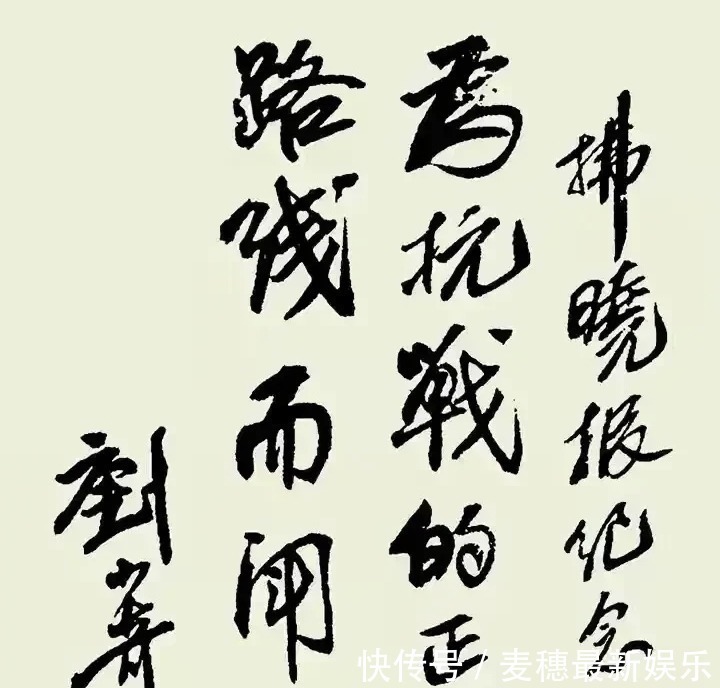 拂曉报纪念
為抗戰的正
路线而鬥
劉少奇
快传号 / 麦穗最新娱乐